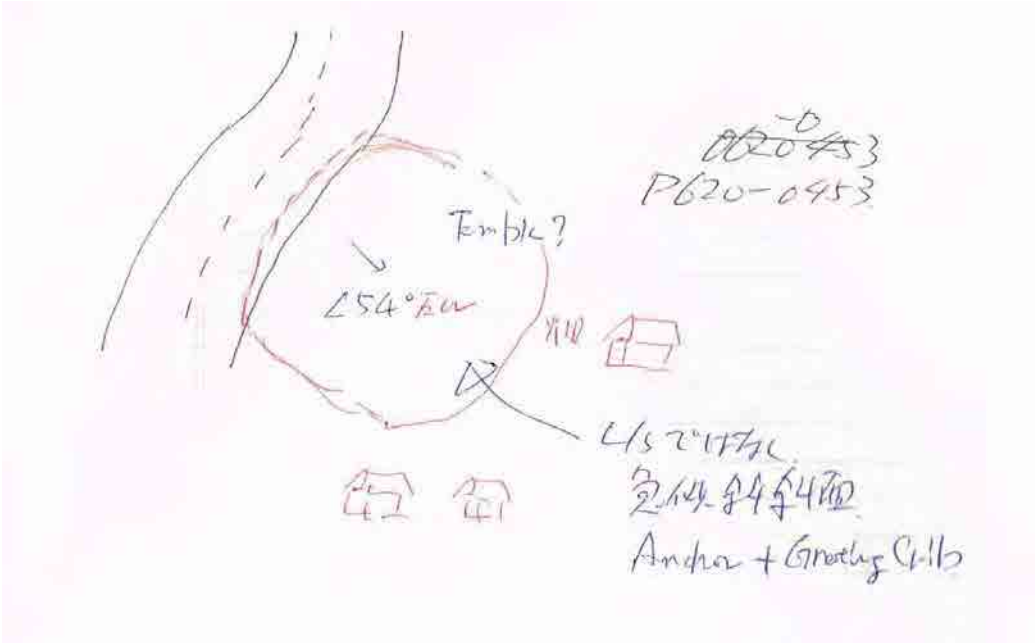 P620-0453
Temple?
∠54°
L/Sではない
急傾斜斜面
Anchor + Grating Crib